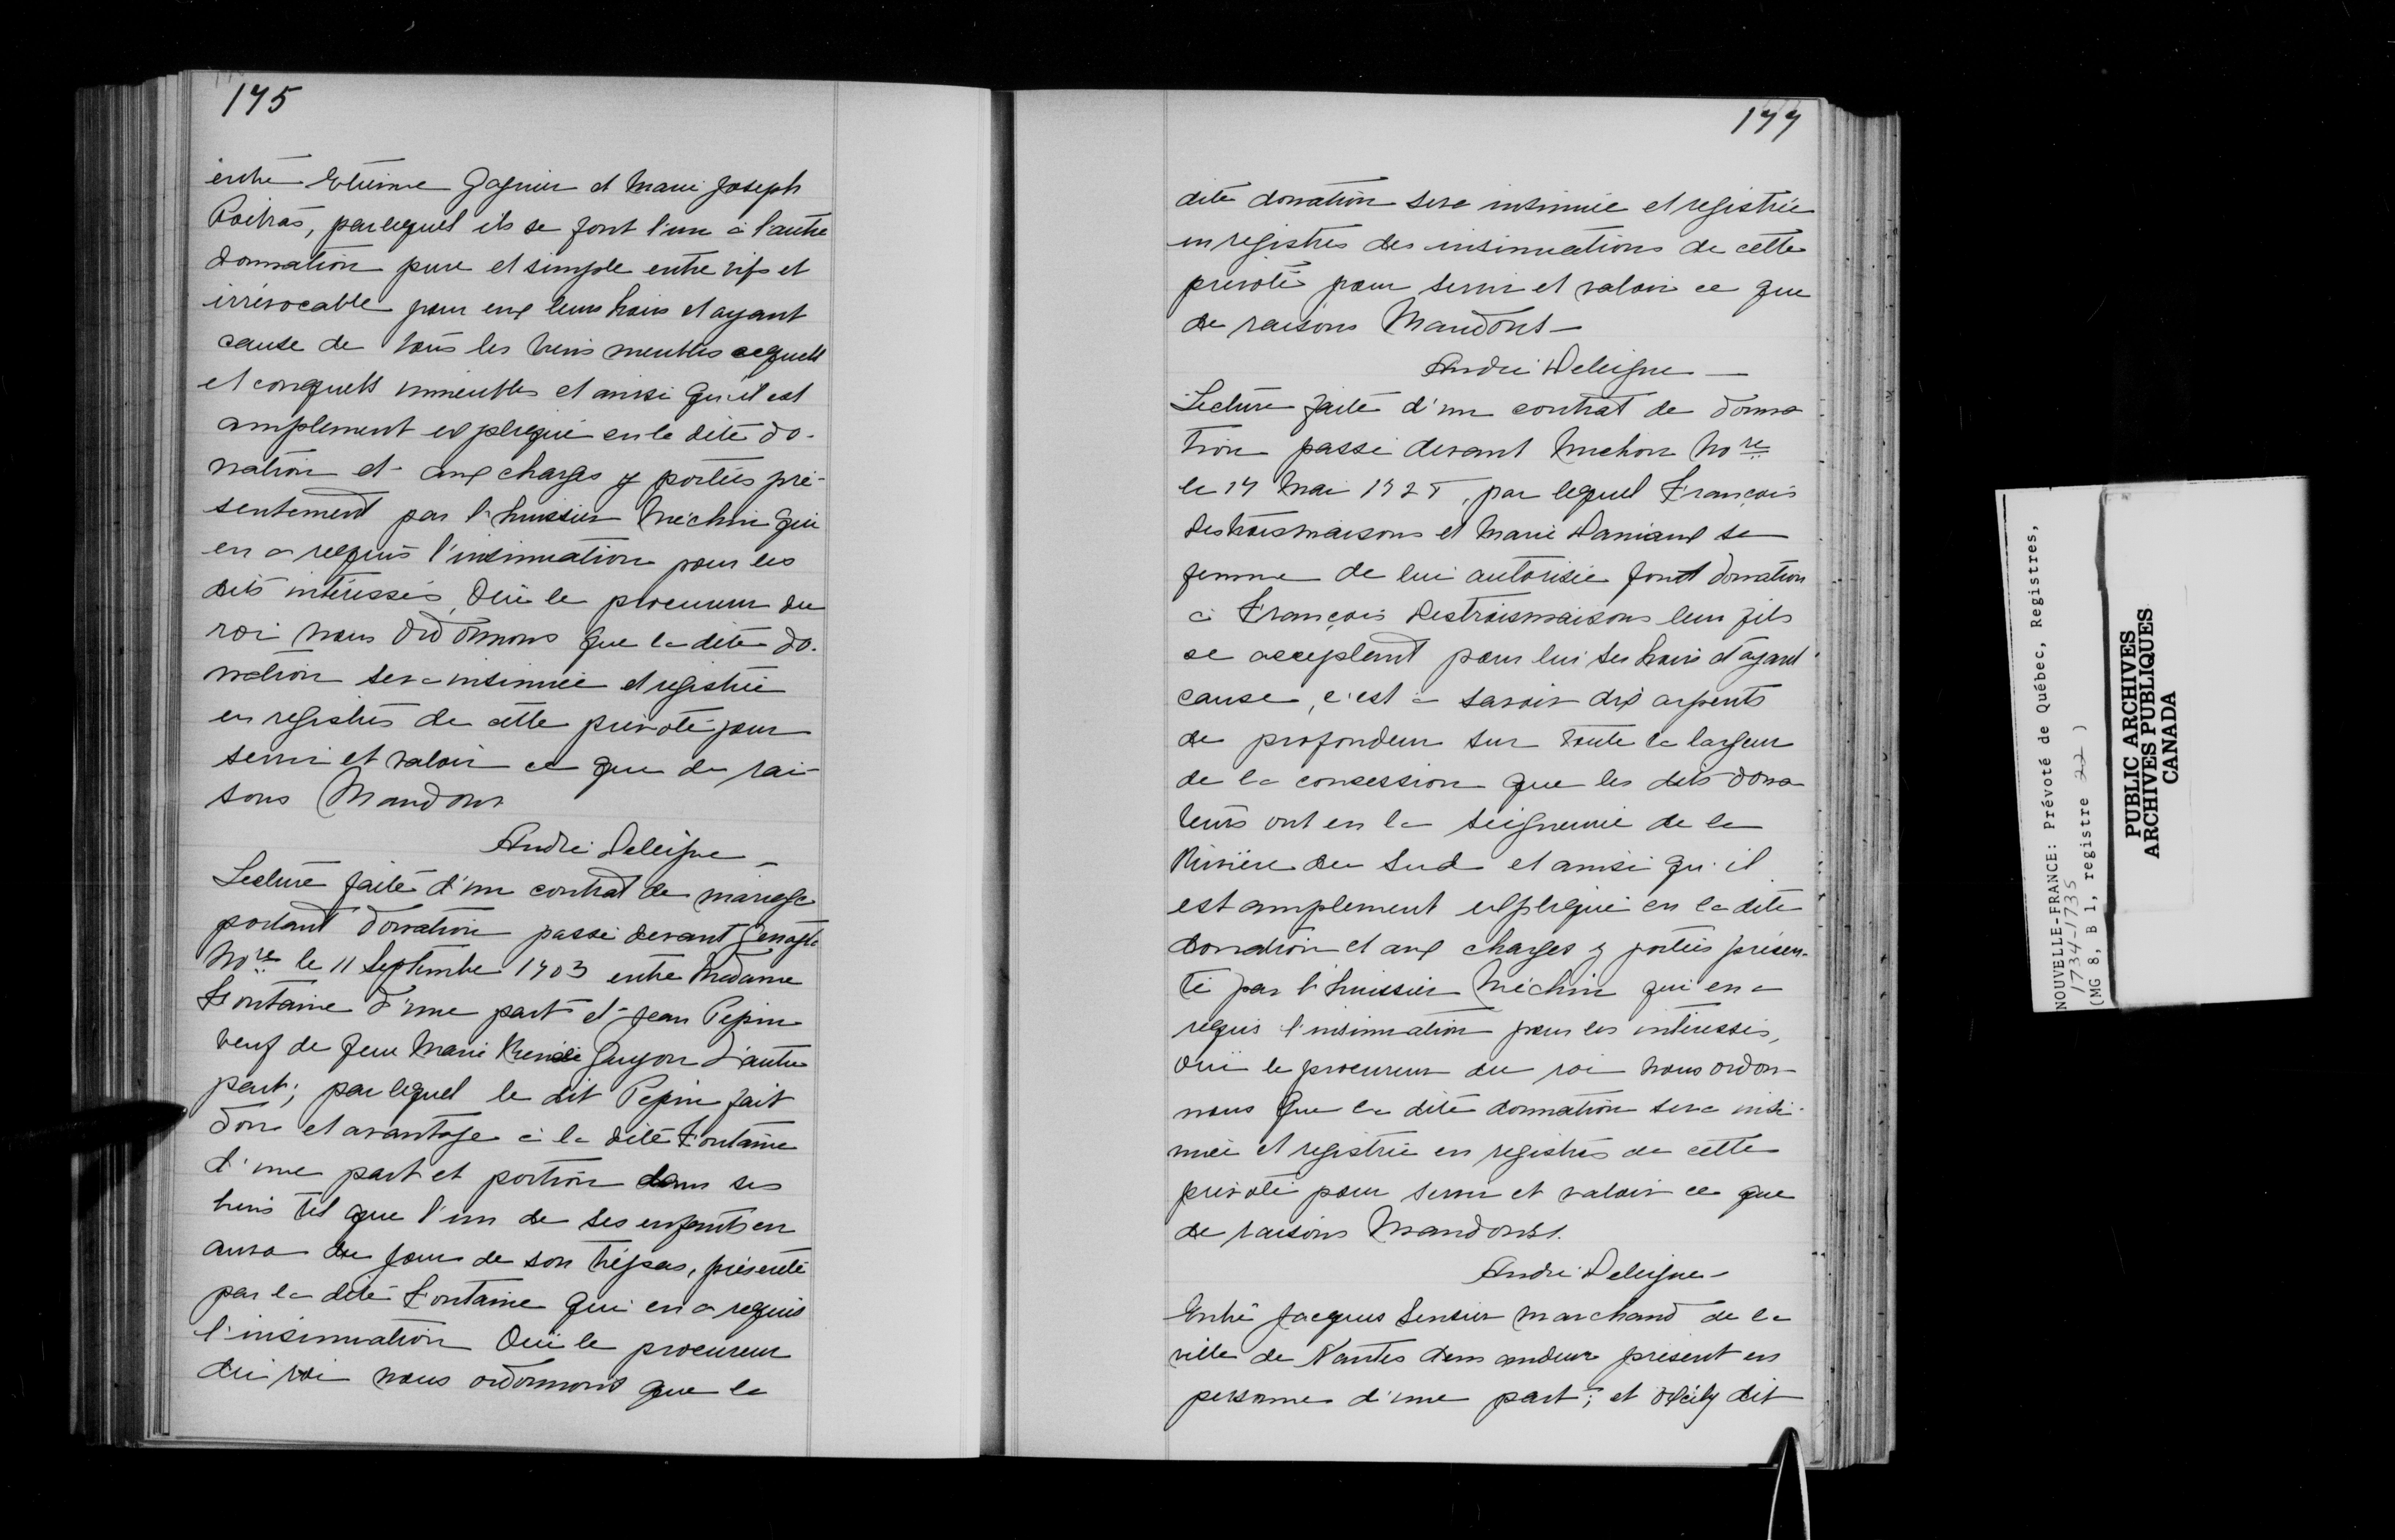 175
entre Etienne Gagnier et Marie Joseph
Poitras, par lequel ils se font l'un à l'autre
donnation pure et simple entre vifs et
irrévocable pour eux leurs hoirs et ayant
cause de tous les biens meubles acquets
et conquets immeubles et ainsi qu'il est
amplement expliqué en la dite do-
nation et aux charges y portées pré-
sentement par l'huissier Méchin qui
en a requis l'insinuation pour les
dits intéressés, Oui le procureur du
roi nous ordonnons que la dite do-
nation sera insinuée et registrée
en registres de cette prévoté pour
servir et valoir ce que de rai-
sons Mandons
André Deleigne —
Lecture faite d'un contrat de mariage
portant donation passé devant Genaple
No re le 11 Septembre 1703 entre Madame
Fontaine d'une part et Jean Pepin
veuf de feue Marie Renée Guyon d'autre
part; par lequel le dit Pepin fait
don et avantage à la dite Fontaine
d'une part et portion dans ses
biens tel que l'un de ses enfants en
aura du jour de son trépas, présenté
par la dite Fontaine qui en a requis
l'insinuation Oui le procureur
du roi nous ordonnons que la
177
dite donation sera insinuée et registrée
en registres des insinuations de cette
prévoté pour servir et valoir ce que
de raisons Mandons —
André Deleigne —
Lecture faite d'un contrat de donna
tion passé devant Michon No re
le 17 Mai 1725, par lequel François
Destroismaisons et Marie Daniaux sa
femme de lui autorisée font donation
à François Destroismaisons leur fils
ce acceptant pour lui ses hoirs et ayant
cause, c'est à savoir dix arpents
de profondeur sur toute la largeur
de la consession que les dits dona
teurs ont en la seigneurie de la
Rivière du Sud et ainsi qu'il
est amplement expliqué en la dite
donation et aux charges y portées présen-
té par l'huissier Méchin qui en a
requis l'insinuation pour les intéressés,
Oui le procureur du roi nous ordon-
nons que la dite donnation sera insi-
nuée et registrée en registres de cette
prévoté pour servir et valoir ce que
de raisons Mandons.
André Deleigne —
Entre Jacques Sensier marchand de la
ville de Nantes demandeur présent en
personne d'une part; et dit
NOUVELLE-FRANCE: Prévoté de Québec, Registres,
1734-1735
(MG 8, B 1, registre 22 )
PUBLIC ARCHIVES
ARCHIVES PUBLIQUES
CANADA